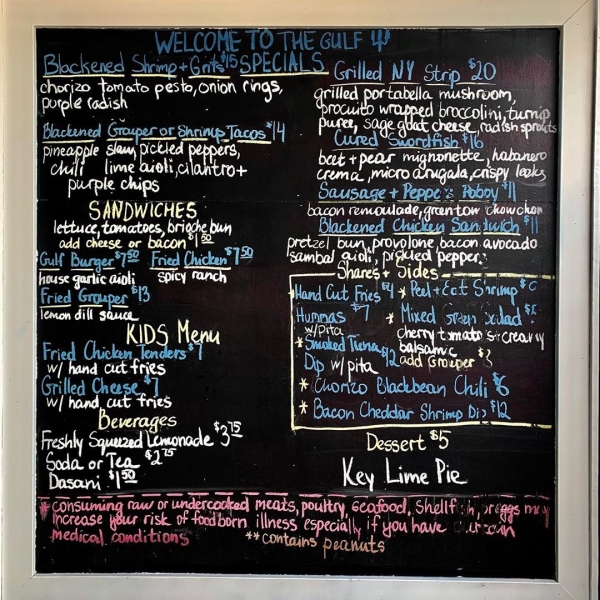 WELCOME TO THE GULF
SPECIALS
Blackened Shrimp + Grits $15
chorizo tomato pesto, onion rings,
purple radish
Blackened Grouper or Shrimp Tacos $14
pineapple slaw, pickled peppers,
chili lime aioli, cilantro +
purple chips
SANDWICHES
lettuce, tomatoes, brioche bun
add cheese or bacon $1.50
Gulf Burger $7.50 Fried Chicken $7.50
house garlic aioli spicy ranch
Fried Grouper $13
lemon dill sauce
KIDS Menu
Fried Chicken Tenders $7
w/ hand cut fries
Grilled Cheese $7
w/ hand cut fries
Beverages
Freshly Squeezed Lemonade $3.75
Soda or Tea $2.75
Dasani $1.50
Grilled NY Strip $20
grilled portabella mushroom,
procuito wrapped broccolini, turnip
puree, sage goat cheese, radish sprouts
Cured Swordfish $16
beet + pear mignonette, habanero
crema, micro arugala, crispy leeks
Sausage + Peppers Poboy $11
bacon remoulade, green tom chowchow
Blackened Chicken Sandwich $11
pretzel bun, provolone, bacon avocado
sambal aioli, pickled pepper
Shares + Sides
Hand Cut Fries $4
Hummas $7
w/pita
* Smoked Tuna $12
Dip w/pita
* Peel + Eat Shrimp
* Mixed Green Salad
cherry tomatoes creamy
balsamic
add Grouper
* Chorizo Blackbean Chili $6
* Bacon Cheddar Shrimp Dip $12
Dessert $5
Key Lime Pie
* consuming raw or undercooked meats, poultry, seafood, shellfish, or eggs may
increase your risk of foodborn illness especially if you have certain
medical conditions
** contains peanuts